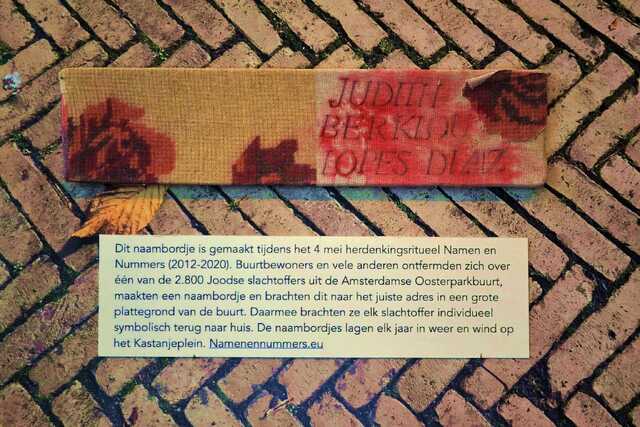 JUDITH
BERKLOU
LOPES DIAZ
Dit naambordje is gemaakt tijdens het 4 mei herdenkingsritueel Namen en
Nummers (2012-2020). Buurtbewoners en vele anderen ontfermden zich over
één van de 2.800 Joodse slachtoffers uit de Amsterdamse Oosterparkbuurt,
maakten een naambordje en brachten dit naar het juiste adres in een grote
plattegrond van de buurt. Daarmee brachten ze elk slachtoffer individueel
symbolisch terug naar huis. De naambordjes lagen elk jaar in weer en wind op
het Kastanjeplein. Namenennummers.eu